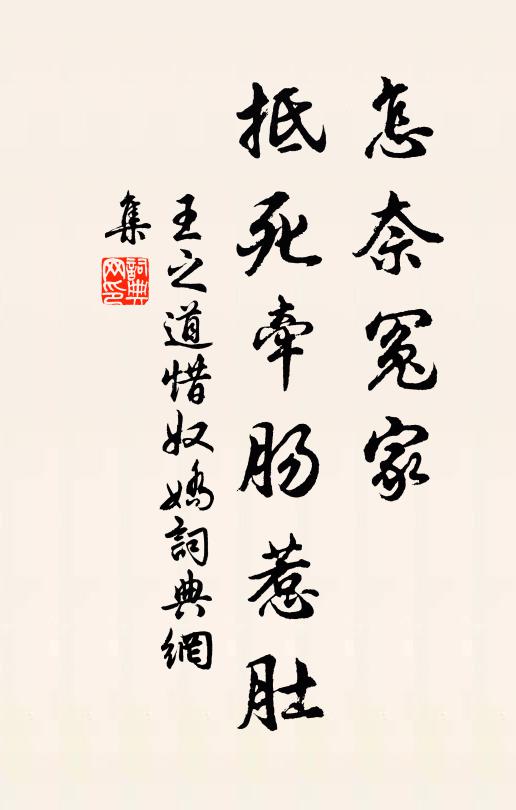 怎奈冤家
抵死牽肠惹肚
王之道惜奴嬌詞典網
集
詞典
网印